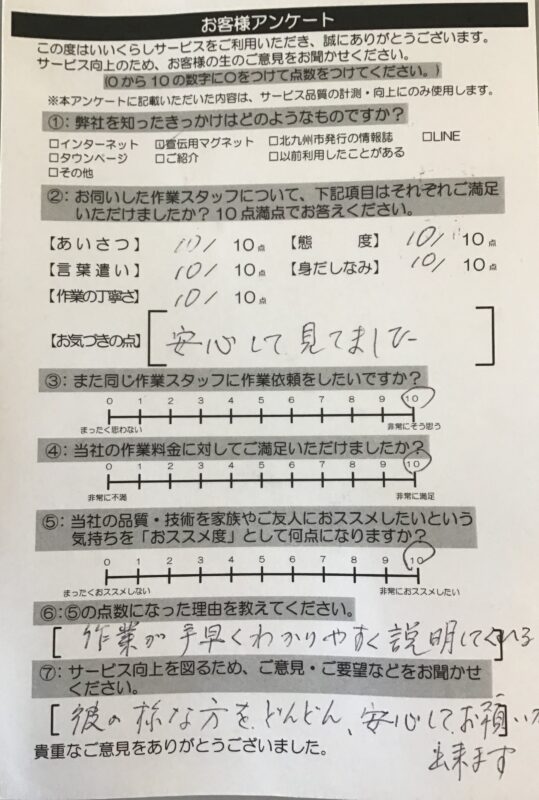 お客様アンケート
この度はいいくらしサービスをご利用いただき、誠にありがとうございます。
サービス向上のため、お客様の生のご意見をお聞かせください。
(0から10の数字に〇をつけて点数をつけてください。)
※本アンケートに記載いただいた内容は、サービス品質の計測・向上にのみ使用します。
①：弊社を知ったきっかけはどのようなものですか？
□インターネット ☑宣伝用マグネット □北九州市発行の情報誌 □LINE
□タウンページ □ご紹介 □以前利用したことがある
□その他
②：お伺いした作業スタッフについて、下記項目はそれぞれご満足
いただけましたか？10点満点でお答えください。
【あいさつ】 10/10点 【態度】 10/10点
【言葉遣い】 10/10点 【身だしなみ】 10/10点
【作業の丁寧さ】 10/10点
【お気づきの点】 安心して見てました
③：また同じ作業スタッフに作業依頼をしたいですか？
0 1 2 3 4 5 6 7 8 9 10
まったく思わない 非常にそう思う
④：当社の作業料金に対してご満足いただけましたか？
0 1 2 3 4 5 6 7 8 9 10
非常に不満 非常に満足
⑤：当社の品質・技術を家族やご友人におススメしたいという
気持ちを「おススメ度」として何点になりますか？
0 1 2 3 4 5 6 7 8 9 10
まったくおススメしない 非常におススメしたい
⑥：⑤の点数になった理由を教えてください。
[作業が手早くわかりやすく説明してくれる]
⑦：サービス向上を図るため、ご意見・ご要望などをお聞かせ
ください。
[彼の様な方を、どんどん、安心してお願い
出来ます
貴重なご意見をありがとうございました。